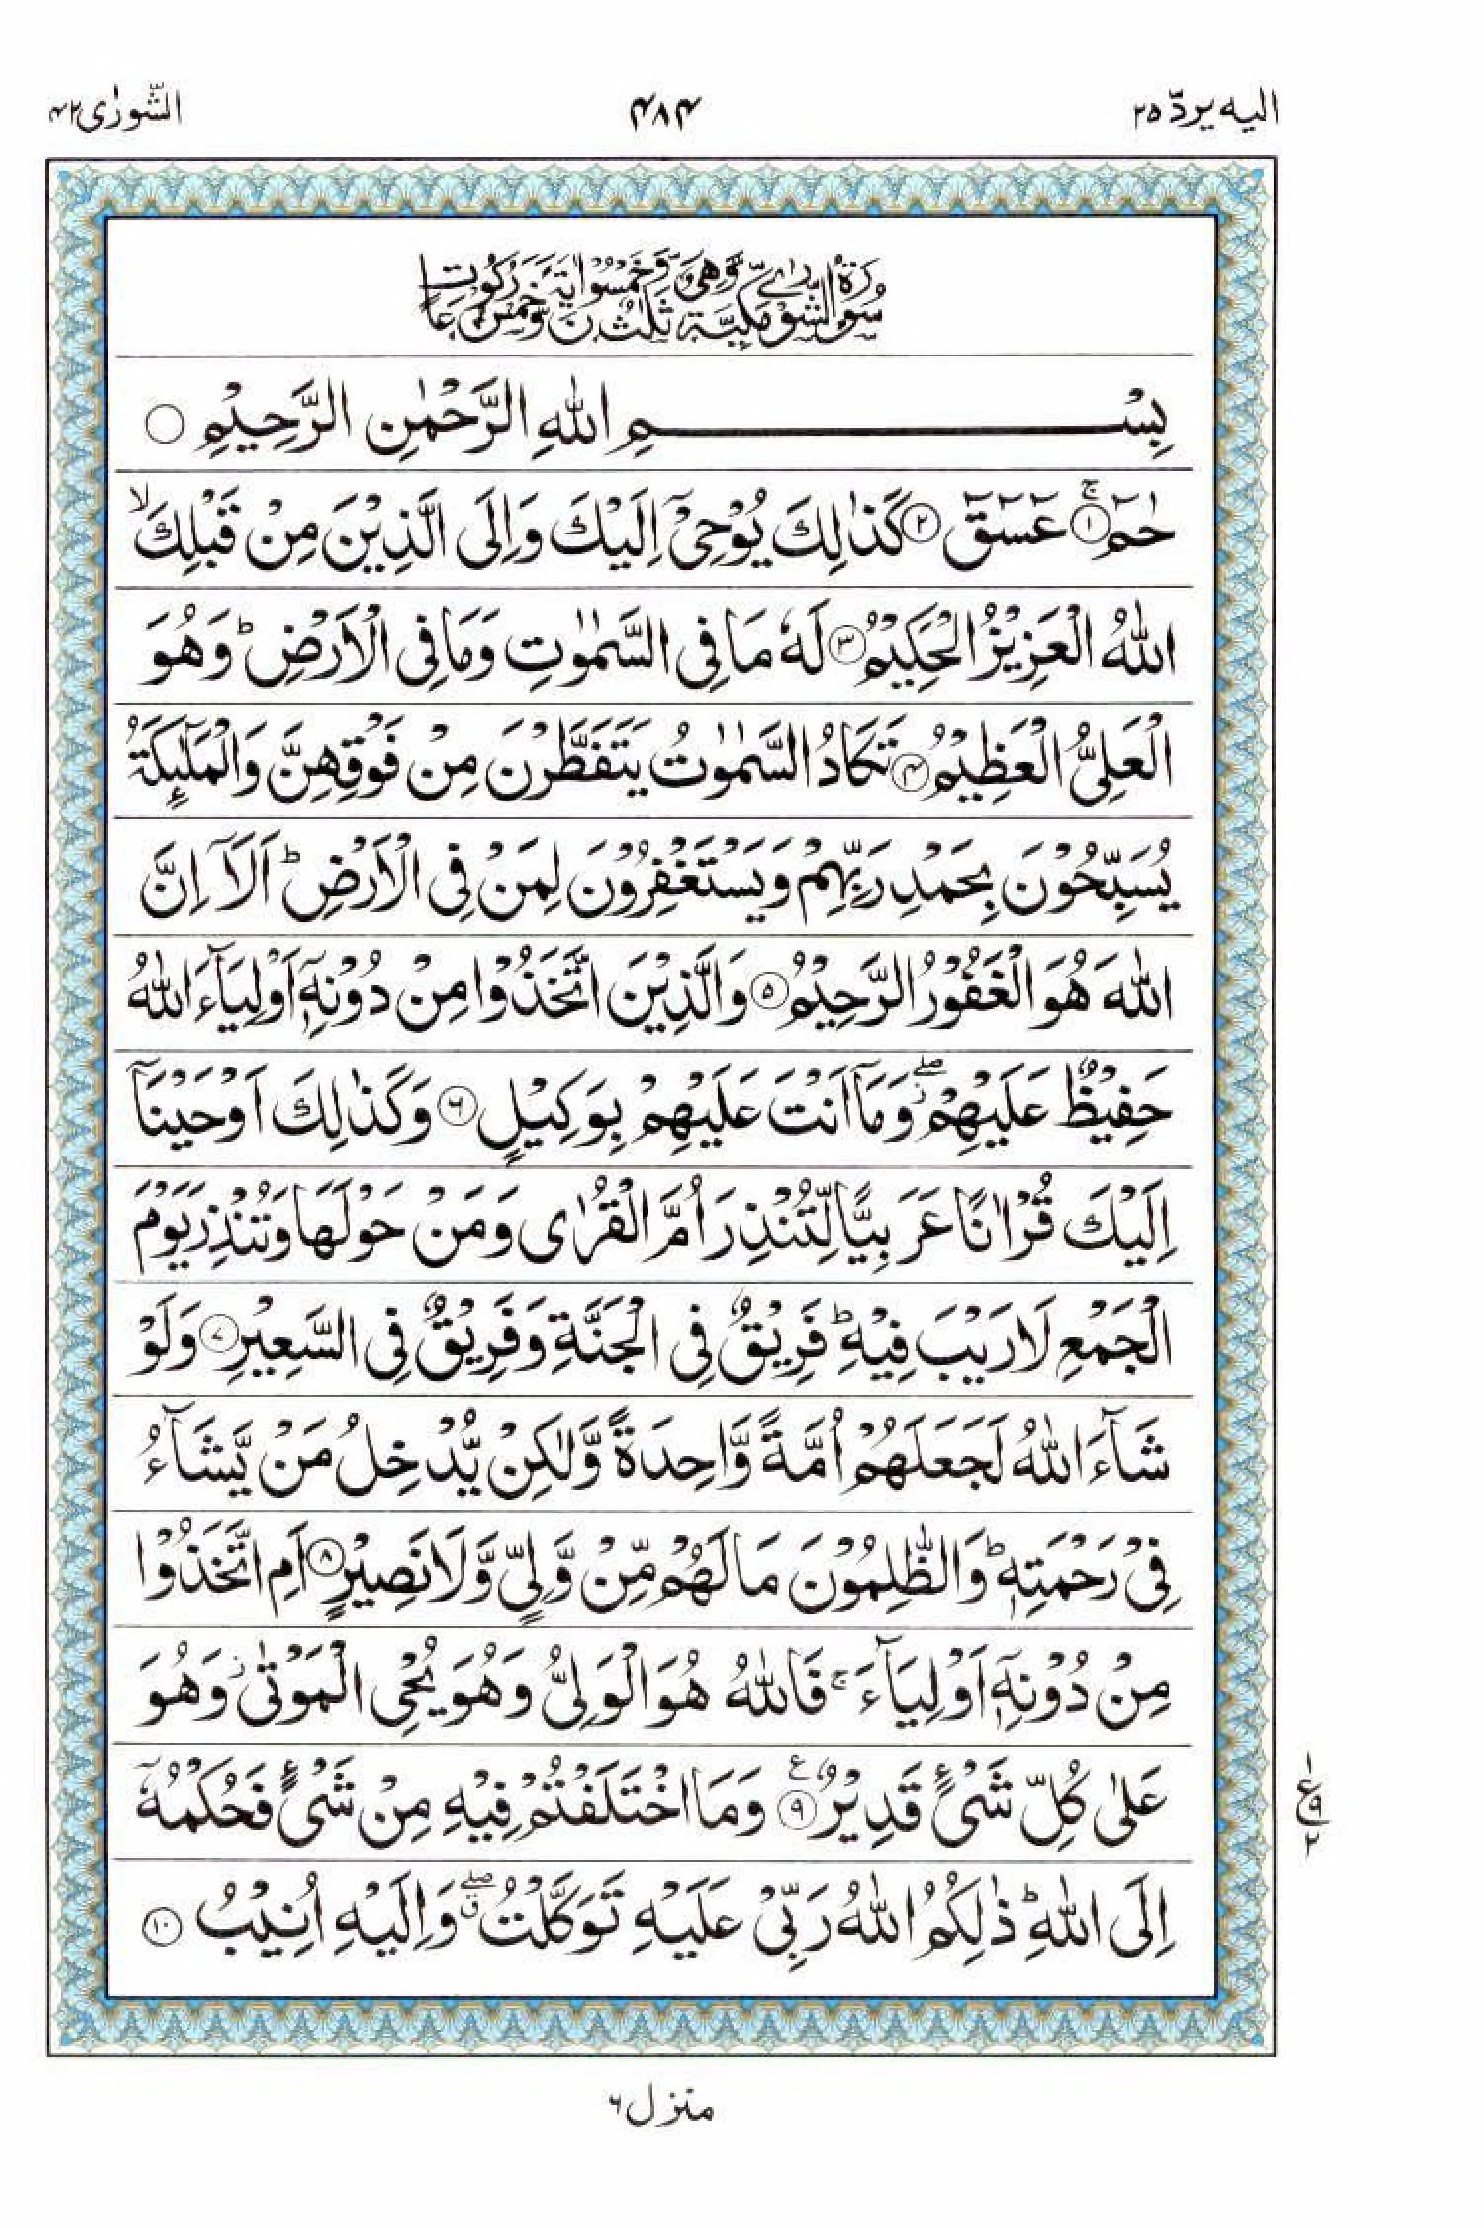 الیه یردّ ٢٥
۴۸۴
الشّورٰی ۴۲
سُوْرَةُ الشُّوْرٰى مَكِّيَّةٌ وَّهِيَ ثَلٰثٌ وَّخَمْسُوْنَ اٰيَةً وَّخَمْسُ رُكُوْعَاتٍ
بِسْمِ اللّٰهِ الرَّحْمٰنِ الرَّحِيْمِ ○
حٰمٓ ۚ﴿۱﴾ عٓسٓقٓ ﴿۲﴾ كَذٰلِكَ يُوْحِيْۤ اِلَيْكَ وَاِلَى الَّذِيْنَ مِنْ قَبْلِكَ ۙ
اللّٰهُ الْعَزِيْزُ الْحَكِيْمُ ﴿۳﴾ لَهٗ مَا فِى السَّمٰوٰتِ وَمَا فِى الْاَرْضِ ؕ وَهُوَ
الْعَلِىُّ الْعَظِيْمُ ﴿۴﴾ تَكَادُ السَّمٰوٰتُ يَتَفَطَّرْنَ مِنْ فَوْقِهِنَّ وَالْمَلٰٓئِكَةُ
يُسَبِّحُوْنَ بِحَمْدِ رَبِّهِمْ وَيَسْتَغْفِرُوْنَ لِمَنْ فِى الْاَرْضِ ؕ اَلَاۤ اِنَّ
اللّٰهَ هُوَ الْغَفُوْرُ الرَّحِيْمُ ﴿۵﴾ وَالَّذِيْنَ اتَّخَذُوْا مِنْ دُوْنِهٖۤ اَوْلِيَآءَ اللّٰهُ
حَفِيْظٌ عَلَيْهِمْ ۖ٘ وَمَاۤ اَنْتَ عَلَيْهِمْ بِوَكِيْلٍ ﴿۶﴾ وَكَذٰلِكَ اَوْحَيْنَاۤ
اِلَيْكَ قُرْاٰنًا عَرَبِيًّا لِّتُنْذِرَ اُمَّ الْقُرٰى وَمَنْ حَوْلَهَا وَتُنْذِرَ يَوْمَ
الْجَمْعِ لَا رَيْبَ فِيْهِ ؕ فَرِيْقٌ فِى الْجَنَّةِ وَفَرِيْقٌ فِى السَّعِيْرِ ﴿۷﴾ وَلَوْ
شَآءَ اللّٰهُ لَجَعَلَهُمْ اُمَّةً وَّاحِدَةً وَّلٰكِنْ يُّدْخِلُ مَنْ يَّشَآءُ
فِىْ رَحْمَتِهٖ ؕ وَالظّٰلِمُوْنَ مَا لَهُمْ مِّنْ وَّلِىٍّ وَّلَا نَصِيْرٍ ﴿۸﴾ اَمِ اتَّخَذُوْا
مِنْ دُوْنِهٖۤ اَوْلِيَآءَ ۚ فَاللّٰهُ هُوَ الْوَلِىُّ وَهُوَ يُحْىِ الْمَوْتٰى ؗ وَهُوَ
عَلٰى كُلِّ شَىْءٍ قَدِيْرٌ ﴿۹﴾ ع وَمَا اخْتَلَفْتُمْ فِيْهِ مِنْ شَىْءٍ فَحُكْمُهٗۤ
اِلَى اللّٰهِ ؕ ذٰلِكُمُ اللّٰهُ رَبِّىْ عَلَيْهِ تَوَكَّلْتُ ۖ ق وَاِلَيْهِ اُنِيْبُ ﴿۱۰﴾
ع ١ ٩ ٢
منزل ۶